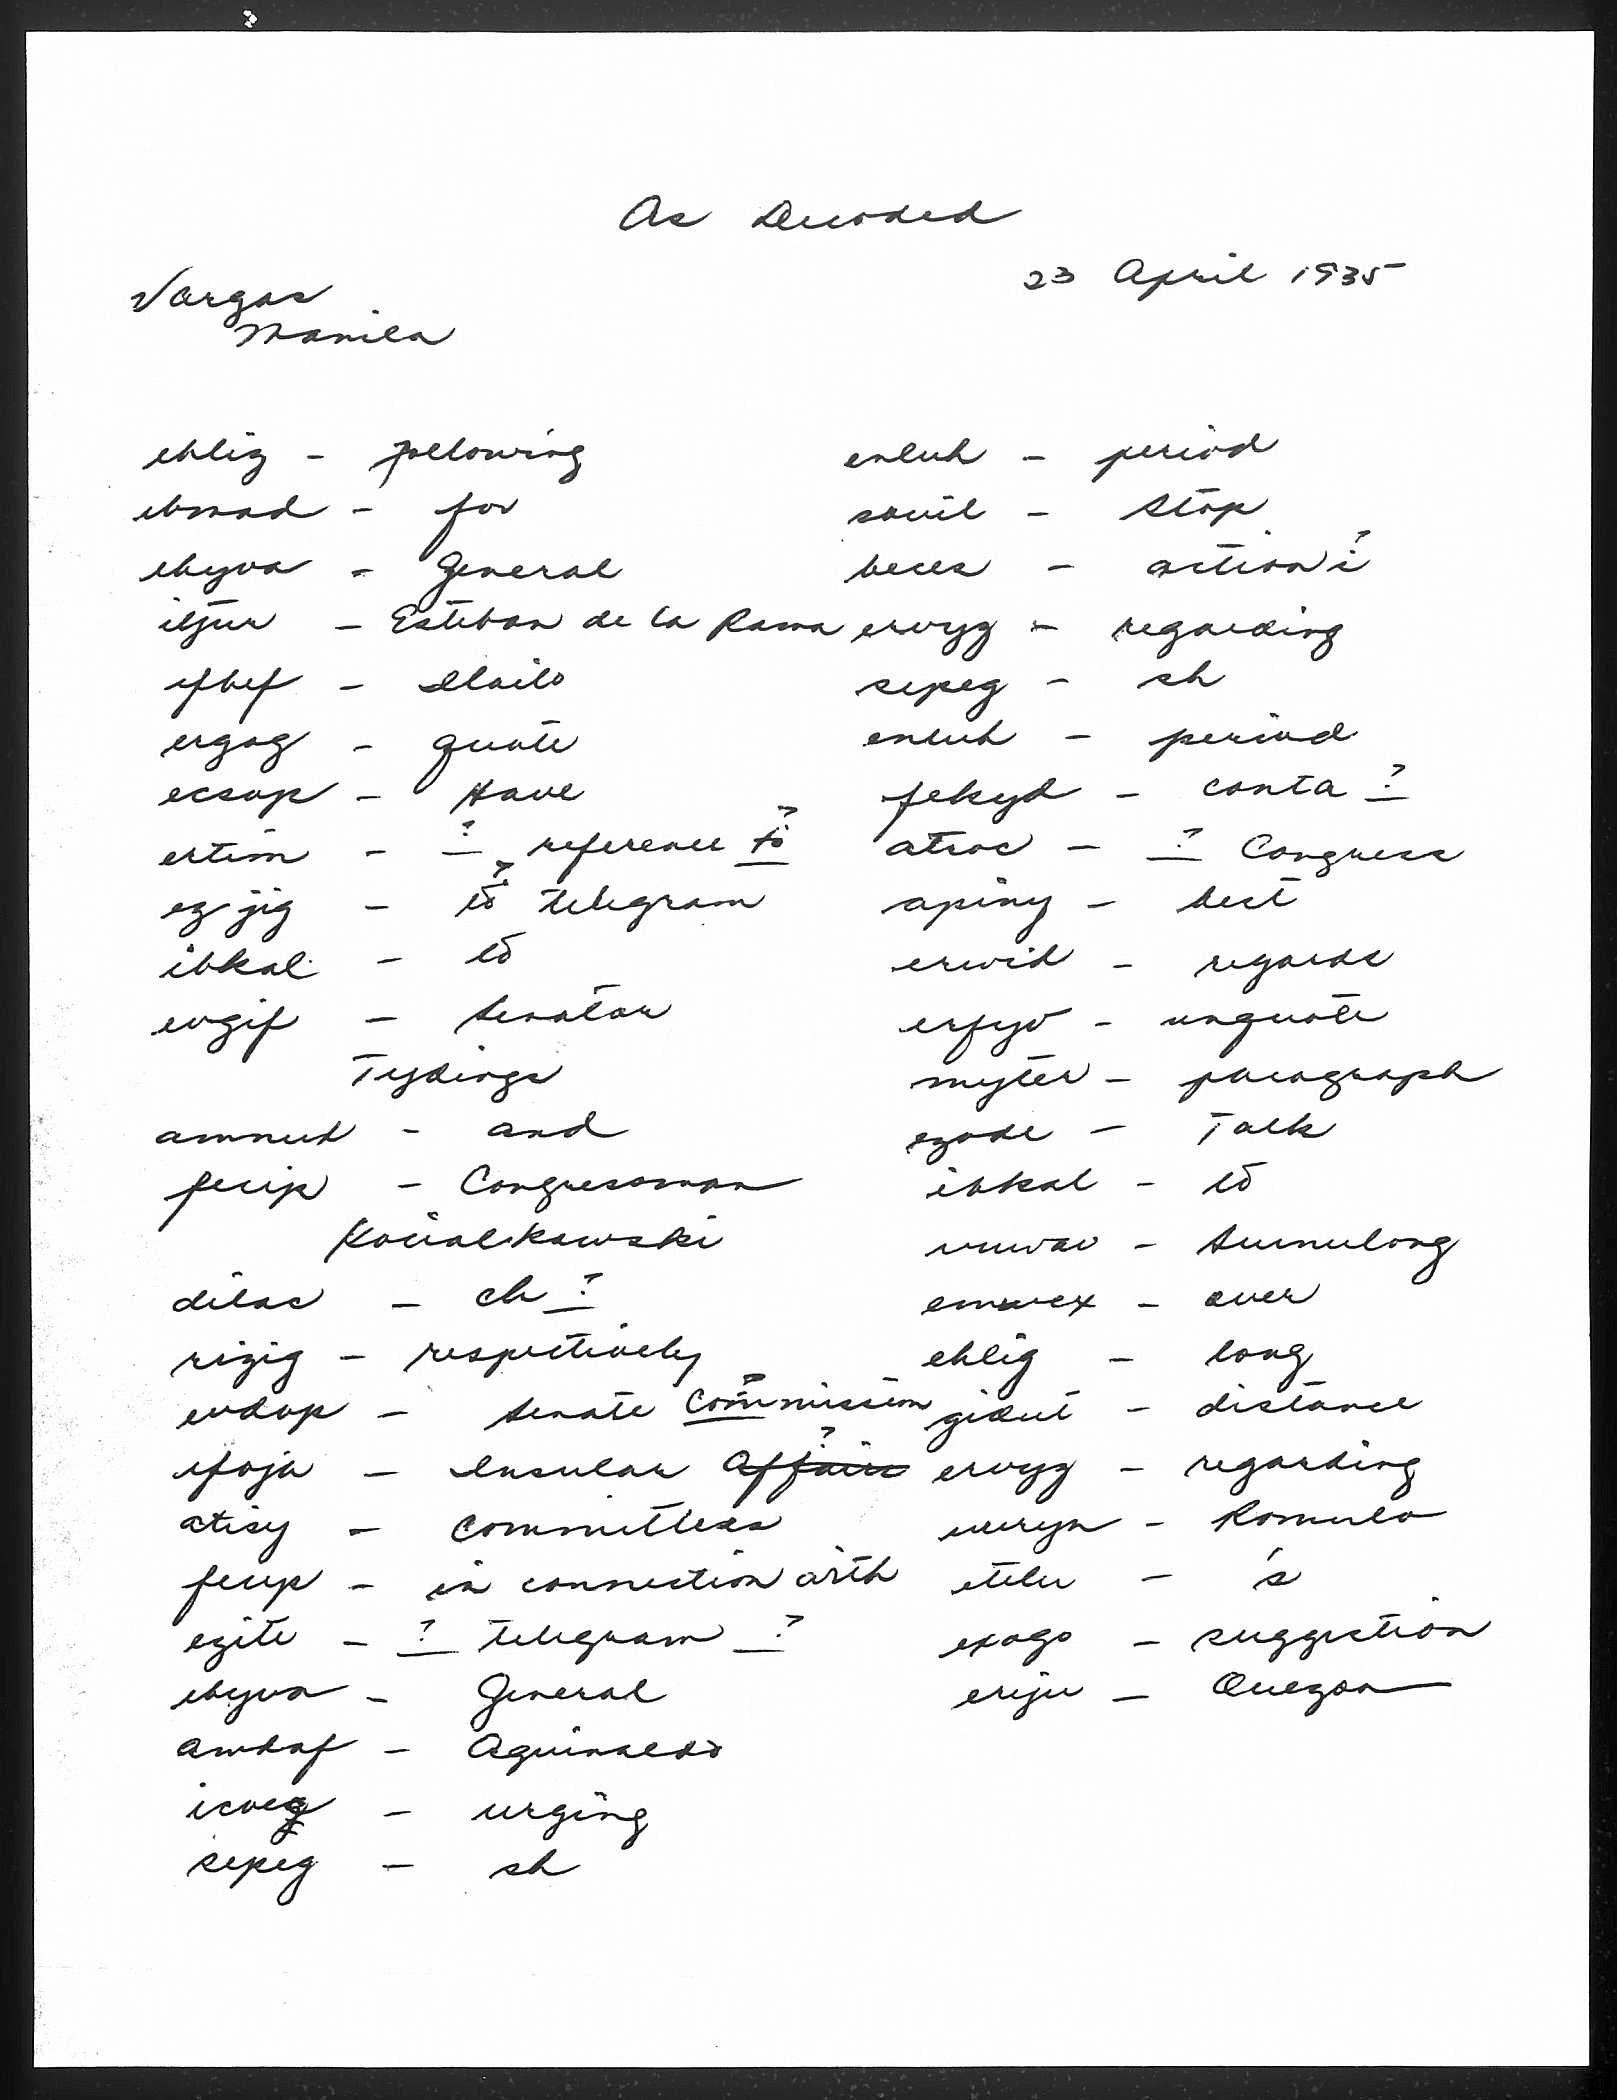 As Decoded
23 April 1935
Vargas
Manila
ehlig - following
ebmad - for
ehyva - General
iljur - Esteban de la Rama
efhef - Iloilo
ergog - quote
ecsop - Have
ertim - ? reference to ?
ezjig - to ? telegram
ibkal - to
evgif - Senator
Tydings
amnuh - and
fecip - Congressman
Kocialkowski
dilac - ch ?
rizig - respectively
evdop - Senate Commission ?
efoja - Insular Affairs ?
atisy - Committees
fecep - in connection with
ezite - ? telegram ?
ehyva - General
amdaf - Aguinaldo
icveg - urging
sepeg - sh
enluh - period
sovil - Stop
beces - action i ?
ervyg - regarding
sepeg - sh
enluh - period
fekyd - conta ?
atroc - ? Congress
apiny - best
erwid - regards
erfyv - unquote
myter - paragraph
ezode - Talk
ibkal - to
Sumulong
emwex - over
ehlig - long
gidut - distance
ervyg - regarding
Romulo
etelu - 's
exogo - suggestion
eriju - Quezon